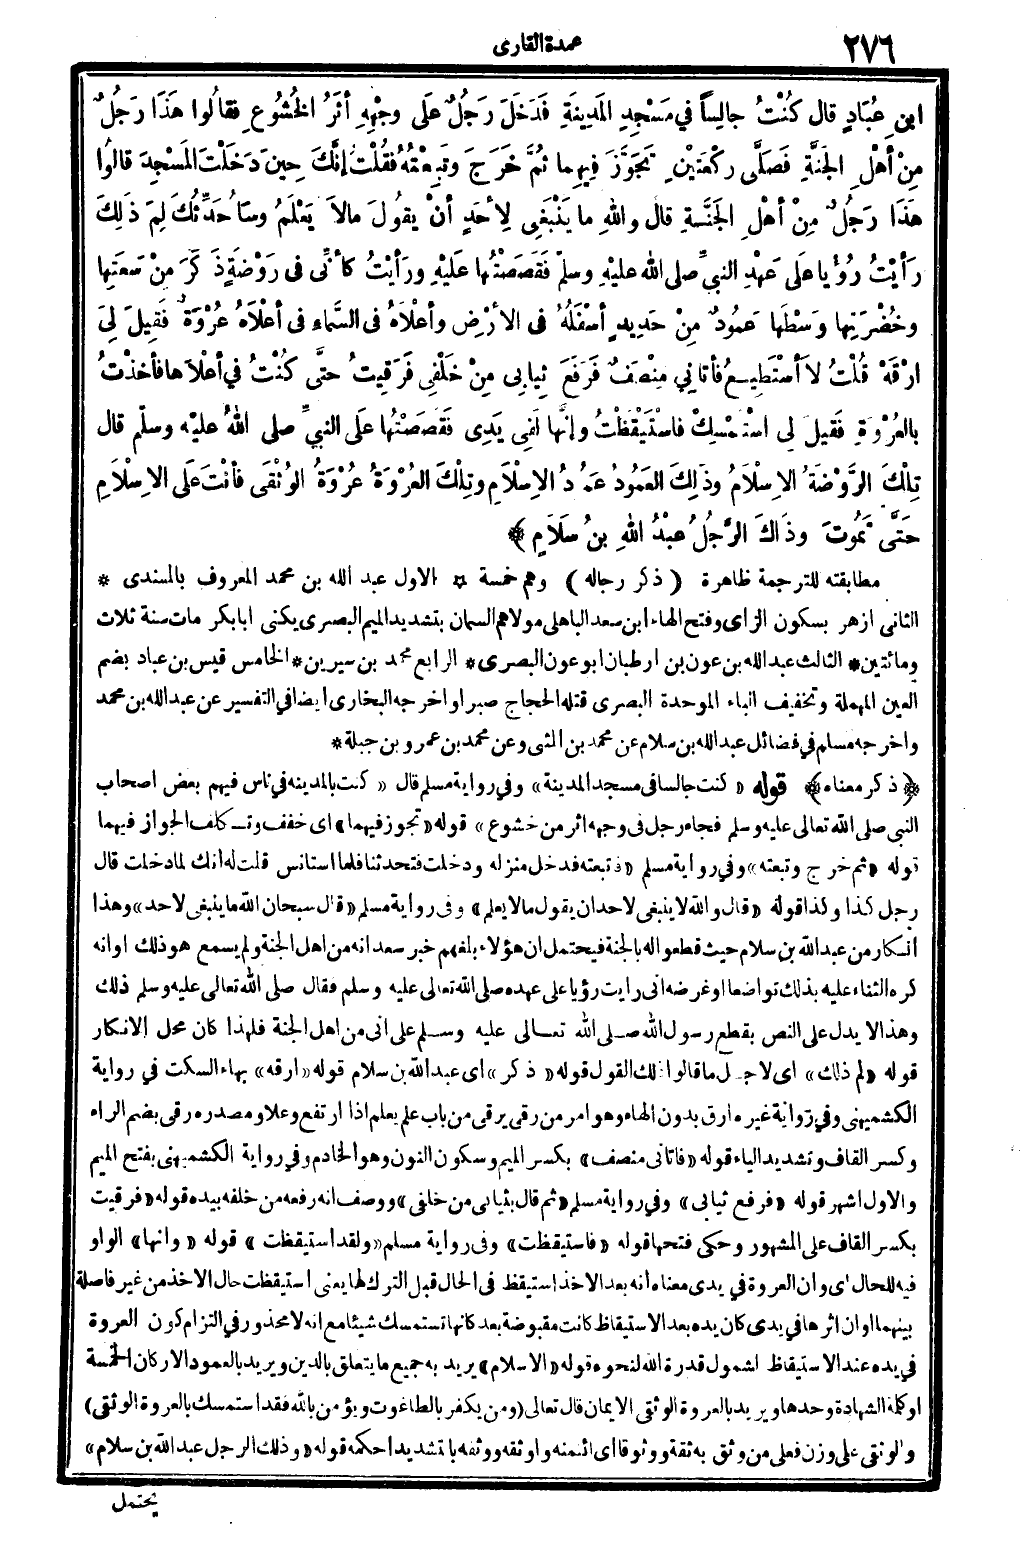 ٢٧٦
عمدة القارى
ابنِ عُبَادٍ قال كُنْتُ جالِسًا في مَسْجِدِ المَدِينَةِ فَدَخَلَ رَجُلٌ عَلَى وجْهِهِ أثَرُ الخُشُوعِ فقالُوا هَذَا رَجُلٌ
مِنْ أهْلِ الجَنَّةِ فَصَلَّى رَكْعَتَيْنِ تَجَوَّزَ فِيهِما ثُمَّ خَرَجَ وتَبِعْتُهُ فَقُلْتُ إنَّكَ حِينَ دَخَلْتَ المَسْجِدَ قالُوا
هَذَا رَجُلٌ مِنْ أهْلِ الجَنَّةِ قال واللهِ ما يَنْبَغِى لِأحَدٍ أنْ يقُولَ مالاَ يَعْلَمُ وسَأُحَدِّثُكَ لِمَ ذَلِكَ
رَأيْتُ رُؤْيا عَلَى عَهْدِ النبيِّ صلى الله عليْهِ وسلّم فَقَصَصْتُها عَلَيْهِ ورَأيْتُ كأنِّى فى رَوْضَةٍ ذَكَرَ مِنْ سَعَتِها
وخُضْرَتِها وَسْطَها عَمُودٌ مِنْ حَدِيدٍ أسْفَلُهُ فى الأرْضِ وأعْلاَهُ فى السَّماءِ فى أعْلاَهُ عُرْوَةٌ فَقِيلَ لِىَ
ارْقَهْ قُلْتُ لاَ أسْتَطِيعُ فأتانِي مِنْصَفٌ فَرَفَعَ ثِيابِى مِنْ خَلْفِى فَرَقِيتُ حتَّى كُنْتُ في أعْلاَها فأخَذْتُ
بالعُرْوَةِ فَقِيلَ لِى اسْتَمْسِكْ فاسْتَيْقَظْتُ وإنَّها لَفِى يَدِى فَقَصَصْتُها عَلَى النبيِّ صلى اللهُ عليْه وسلم قال
تِلْكَ الرَّوْضَةُ الإسْلاَمُ وذَلِكَ العَمُودُ عَمُودُ الإسْلاَمِ وتِلْكَ العُرْوَةُ عُرْوَةُ الوُثْقَى فأنْتَ عَلَى الإسْلاَمِ
حَتَّى تَمُوتَ وذَاكَ الرَّجُلُ عَبْدُ اللهِ بنُ سَلاَمٍ ﴾
مطابقته للترجمة ظاهرة ( ذكر رجاله ) وهم خمسة * الاول عبد الله بن محمد المعروف بالمسندى *
الثانى ازهر بسكون الزاى وفتح الهاء ابن سعد الباهلى مولاهم السمان بتشديد الميم البصرى يكنى ابا بكر مات سنة ثلاث
ومائتين * الثالث عبد الله بن عون بن ارطبان ابو عون البصرى * الرابع محمد بن سيرين * الخامس قيس بن عباد بضم
العين المهملة وتخفيف الباء الموحدة البصرى قتله الحجاج صبرا واخرجه البخارى ايضا في التفسير عن عبد الله بن محمد
واخرجه مسلم في فضائل عبد الله بن سلام عن محمد بن المثنى وعن محمد بن عمرو بن جبلة *
﴿ ذكر معناه ﴾ قوله « كنت جالسا فى مسجد المدينة » وفي رواية مسلم قال « كنت بالمدينه في ناس فيهم بعض اصحاب
النبى صلى الله تعالى عليه وسلم فجاء رجل فى وجهه اثر من خشوع » قوله « تجوز فيهما » اى خفف وتكلف الجواز فيهما
قوله « ثم خرج وتبعته » وفي رواية مسلم « فتبعته فدخل منزله ودخلت فتحدثنا فلما استانس قلت له انك لما دخلت قال
رجل كذا وكذا قوله « قال والله لا ينبغى لاحد ان يقول مالا يعلم » وفى رواية مسلم « قال سبحان الله ما ينبغى لاحد » وهذا
انكار من عبد الله بن سلام حيث قطعوا له بالجنة فيحتمل ان هؤلاء بلغهم خبر سعد انه من اهل الجنة ولم يسمع هو ذلك او انه
كره الثناء عليه بذلك تواضعا او غرضه انى رايت رؤيا على عهده صلى الله تعالى عليه وسلم فقال صلى الله تعالى عليه وسلم ذلك
وهذا لا يدل على النص بقطع رسول الله صلى الله تعالى عليه وسلم على انى من اهل الجنة فلهذا كان محل الانكار
قوله « لم ذلك » اى لاجل ما قالوا ذلك القول قوله « ذكر » اى عبد الله بن سلام قوله « ارقه » بهاء السكت في رواية
الكشميهنى وفي رواية غيره ارق بدون الهاء وهو امر من رقى يرقى من باب علم يعلم اذا ارتفع وعلا ومصدره رقى بضم الراء
وكسر القاف وتشديد الياء قوله « فاتانى منصف » بكسر الميم وسكون النون وهو الخادم وفي رواية الكشميهنى بفتح الميم
والاول اشهر قوله « فرفع ثيابى » وفي رواية مسلم « ثم قال بثيابى من خلفى » ووصف انه رفعه من خلفه بيده قوله « فرقيت
بكسر القاف على المشهور وحكى فتحها قوله « فاستيقظت » وفى رواية مسلم « ولقد استيقظت » قوله « وانها » الواو
فيه للحال اى وان العروة في يدى معناه انه بعد الاخذ استيقظ فى الحال قبل الترك لها يعنى استيقظت حال الاخذ من غير فاصلة
بينهما او ان اثرها في يدى كان يده بعد الاستيقاظ كانت مقبوضة بعد كانها تستمسك شيئا مع انه لا محذور في التزام كون العروة
في يده عند الاستيقاظ لشمول قدرة الله لنحوه قوله « الاسلام » يريد به جميع ما يتعلق بالدين ويريد بالعمود الاركان الخمسة
او كلمة الشهادة وحدها ويريد بالعروة الوثقى الايمان قال تعالى ( ومن يكفر بالطاغوت ويؤمن بالله فقد استمسك بالعروة الوثقى )
والوثقى على وزن فعلى من وثق به ثقة ووثوقا اى ائتمنه واوثقه ووثقه بالتشديد احكمه قوله « وذلك الرجل عبد الله بن سلام »
يحتمل